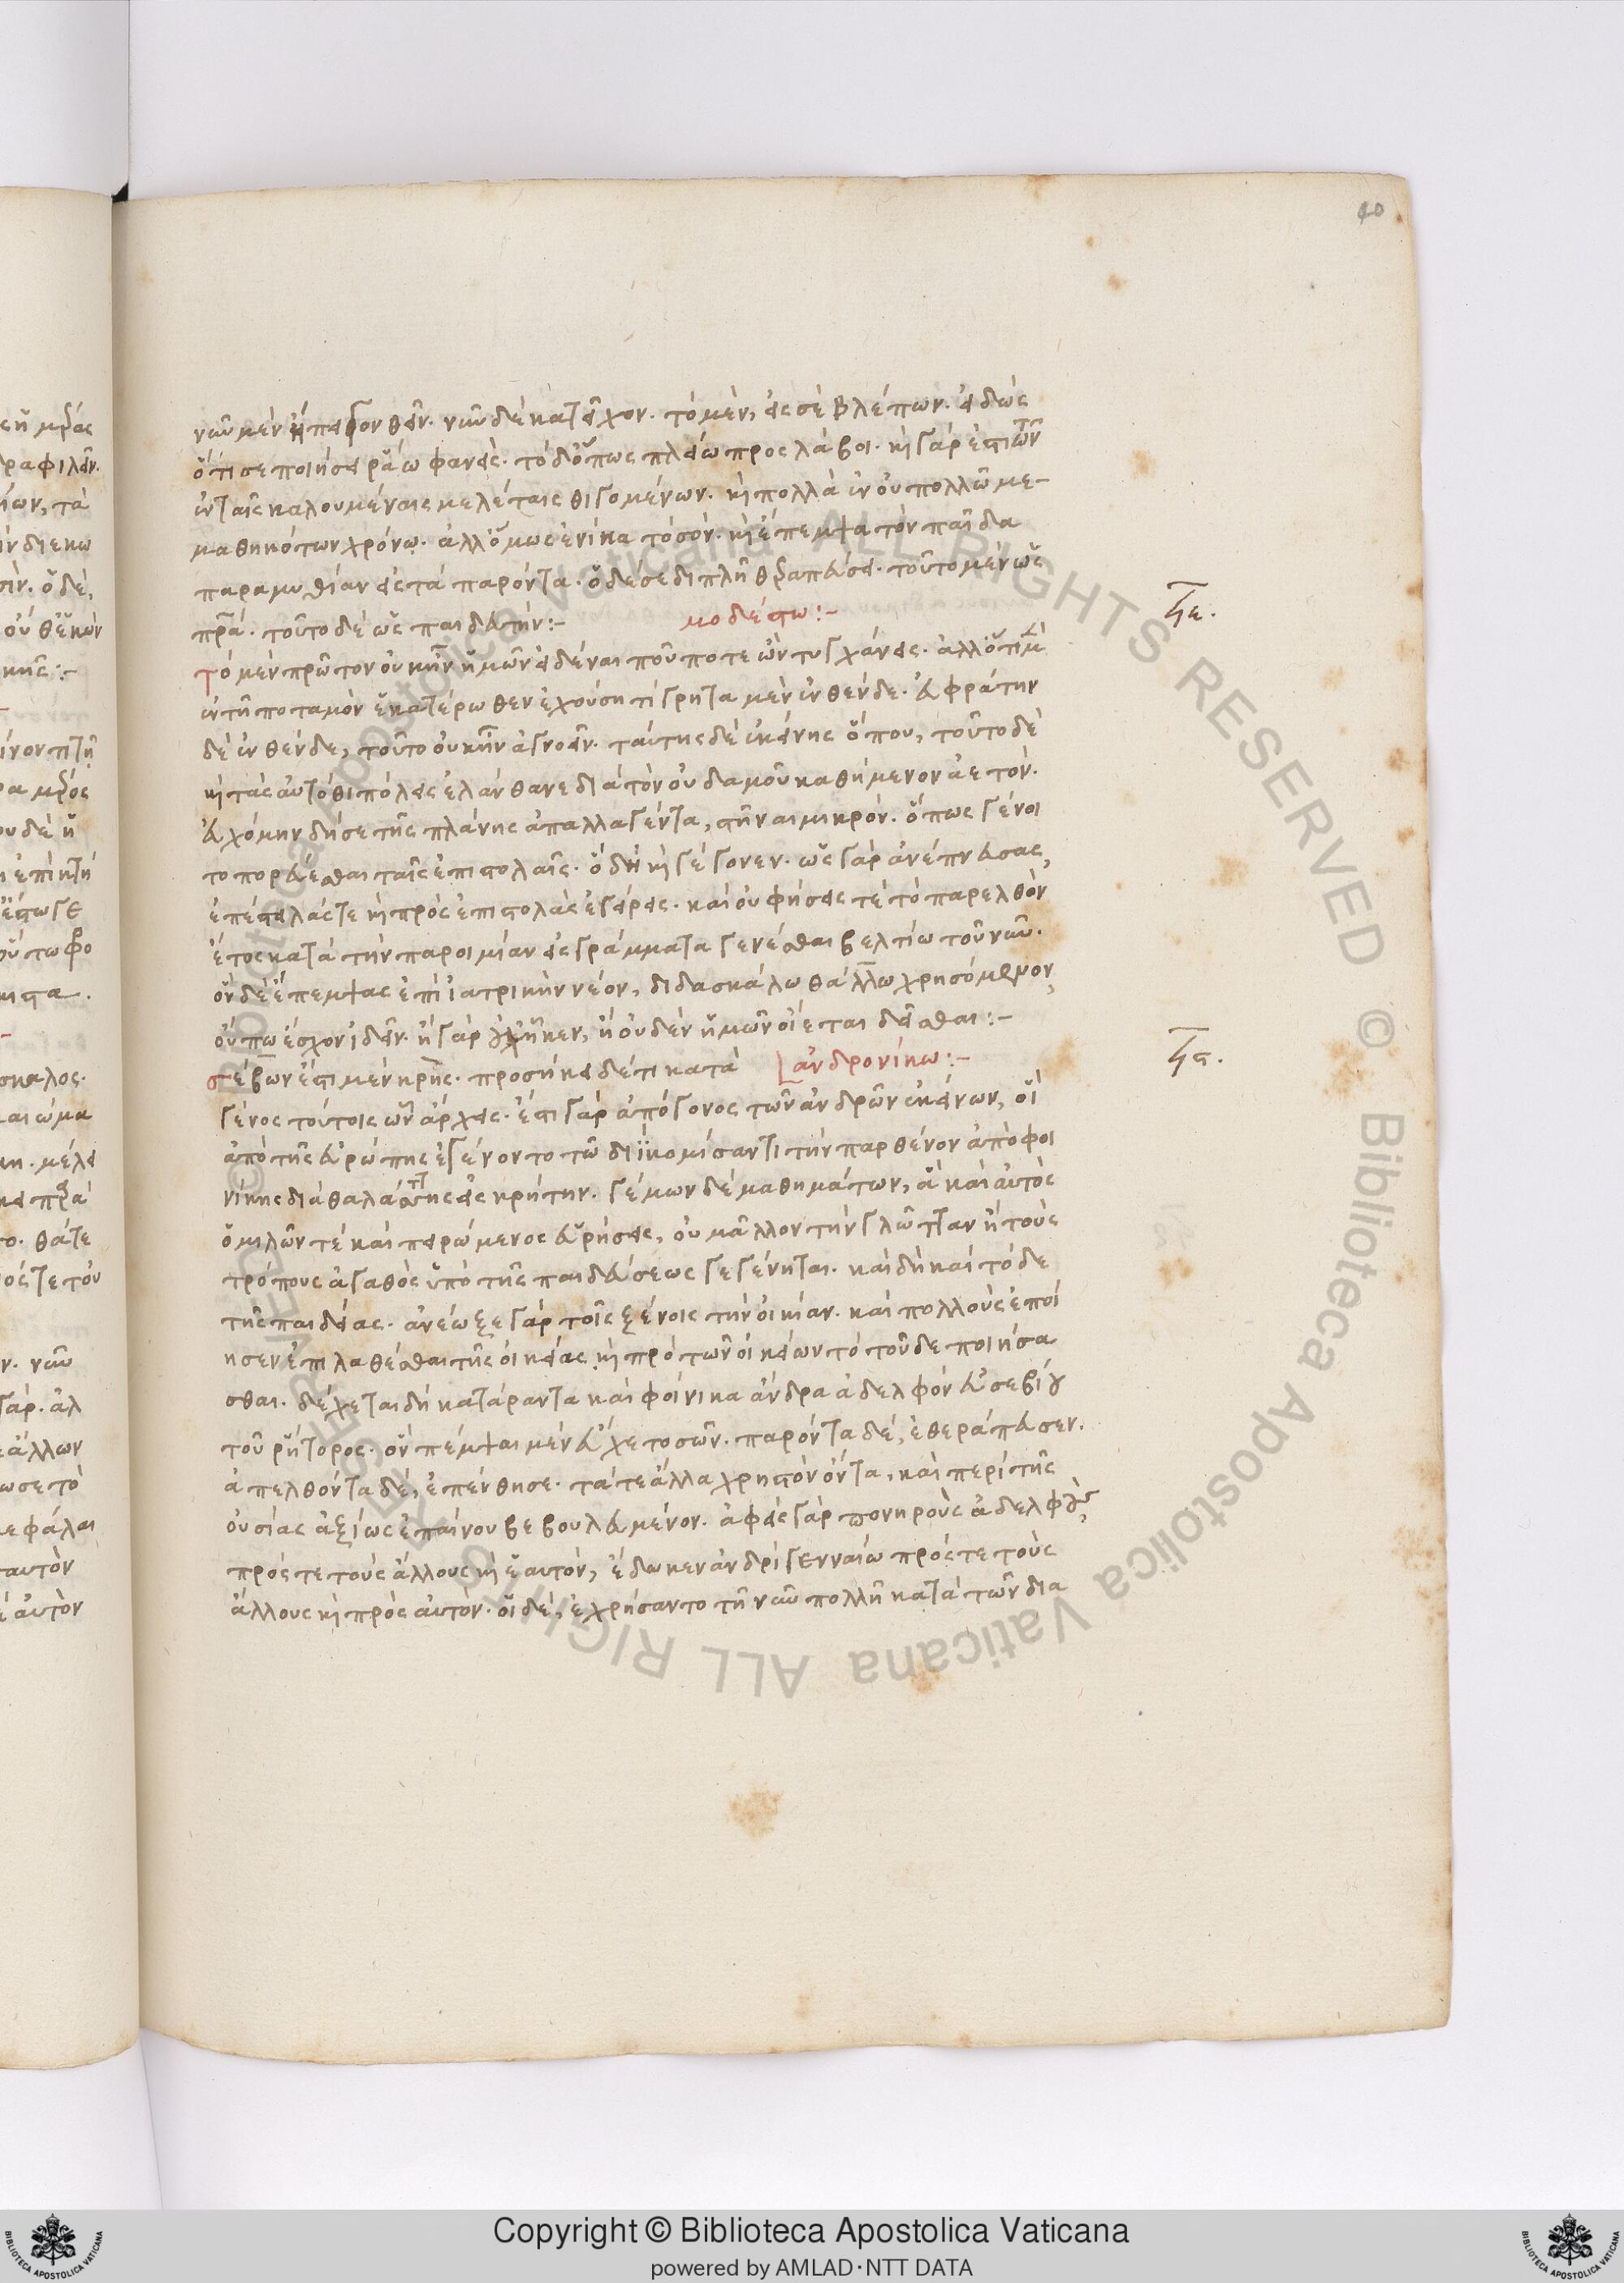 40
νῦν μὲν ἠπείγον θεῖν. νῦν δὲ κατεῖχον. τὸ μὲν, εἰς σὲ βλέπων. εἰδὼς
ὅτι σε ποιήσει ῥάω φανείς. τὸ δ' ὅπως πλείω προσλάβοι. καὶ γὰρ ἐστι τῶν
ἐν ταῖς καλουμέναις μελέταις θιγομένων. καὶ πολλὰ ἐν οὐ πολλῶ με-
μαθηκότων χρόνω. ἀλλ' ὅμως ἐνίκα τὸ σόν. καὶ ἔπεμψα τὸν παῖδα
παραμυθίαν εἰς τὰ παρόντα. ὁ δέ σε διπλῆ θεραπεύσει. τοῦτο μὲν ὡς
πατέρα. τοῦτο δὲ ὡς παιδευτήν:- μοδέστω:-
ϟε.
τὸ μὲν πρῶτον οὐκ ἦν ἡμῖν εἰδέναι ποῦ ποτε ὢν τυγχάνεις. ἀλλ' ὅτι μὲν
ἐν τῆ ποταμὸν ἑκατέρωθεν ἐχούση τίγρητα μὲν ἔνθενδε. εὐφράτην
δὲ ἔνθενδε, τοῦτο οὐκ ἦν ἀγνοεῖν. ταύτης δὲ ἐκείνης ὅπου, τοῦτο δὲ
καὶ τὰς αὐτόθι πόλεις ἐλάνθανε διὰ τὸν οὐδαμοῦ καθήμενον ἀετόν.
εὐχόμην δή σε τῆς πλάνης ἀπαλλαγέντα, στῆναι μικρόν. ὅπως γένοι
το πορεύεσθαι ταῖς ἐπιστολαῖς. ὃ δὴ καὶ γέγονεν. ὡς γὰρ ἀνέπνευσας,
ἐπέστειλάς τε καὶ πρὸς ἐπιστολὰς ἐγείρεις. καὶ οὐ φήσεις τὲ τὸ παρελθὸν
ἔτος κατὰ τὴν παροιμίαν εἰς γράμματα γενέσθαι βελτίω τοῦ νῦν.
ὃν δὲ ἔπεμψας ἐπὶ ἰατρικὴν νέον, διδασκάλω θάλλω χρησόμενον,
οὔπω ἔσχον ἰδεῖν. ἢ γὰρ οὐχ ἧκεν, ἢ οὐδὲν ἡμῶν οἴεται δεῖσθαι:-
σέβων ἔστι μὲν κρής. προσήκει δέ τι κατὰ ἀνδρονίκω:-
ϟϛ.
γένος τούτοις ὧν ἄρχεις. ἔστι γὰρ ἀπόγονος τῶν ἀνδρῶν ἐκείνων, οἳ
ἀπὸ τῆς εὐρώπης ἐγένοντο τῶ διῒ κομίσαντι τὴν παρθένον ἀπὸ φοι
νίκης διὰ θαλάσσης εἰς κρήτην. γέμων δὲ μαθημάτων, ἃ καὶ αὐτὸς
ὁμιλῶν τὲ καὶ πειρώμενος εὑρήσεις, οὐ μᾶλλον τὴν γλῶτταν ἢ τοὺς
τρόπους ἀγαθὸς ὑπὸ τῆς παιδεύσεως γεγένηται. καὶ δὴ καὶ τόδε
τῆς παιδείας. ἀνέωξε γὰρ τοῖς ξένοις τὴν οἰκίαν. καὶ πολλοὺς ἐποί
ησεν ἐπιλαθέσθαι τῆς οἰκείας καὶ πρὸ τῶν οἰκείων τὸ τοῦδε ποιήσα
σθαι. δέχεται δὴ κατάραντα καὶ φοίνικα ἄνδρα ἀδελφὸν εὐσεβίου
τοῦ ῥήτορος. ὃν πέμψαι μὲν εὔχετο σῶν. παρόντα δέ, ἐθεράπευσεν.
ἀπελθόντα δὲ, ἐπένθησε. τά τε ἄλλα χρηστὸν ὄντα, καὶ περὶ τῆς
οὐσίας ἀξίως ἐπαίνου βεβουλευμένον. ἀφεὶς γὰρ πονηροὺς ἀδελφοὺς,
πρός τε τοὺς ἄλλους καὶ ἑαυτὸν, ἔδωκεν ἀνδρὶ γενναίω πρός τε τοὺς
ἄλλους καὶ πρὸς αὐτόν. οἱ δέ, ἐχρήσαντο τῆ νῦν πολλῆ κατὰ τῶν δια
Copyright © Biblioteca Apostolica Vaticana
powered by AMLAD·NTT DATA